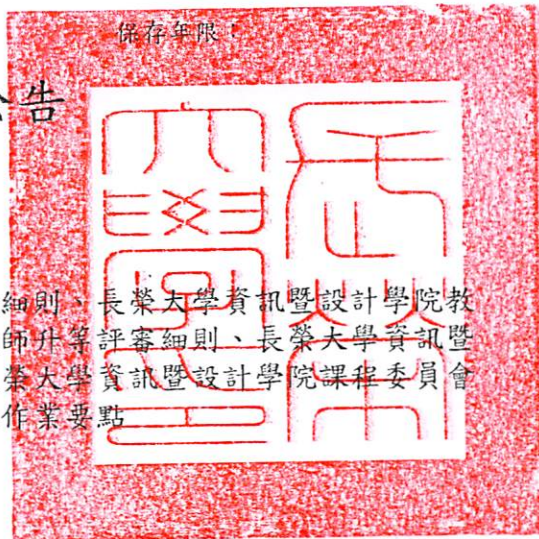 保存年限：
公告
細則、長榮大學資訊暨設計學院教
師升等評審細則、長榮大學資訊暨
榮大學資訊暨設計學院課程委員會
作業要點
長榮
大學之印